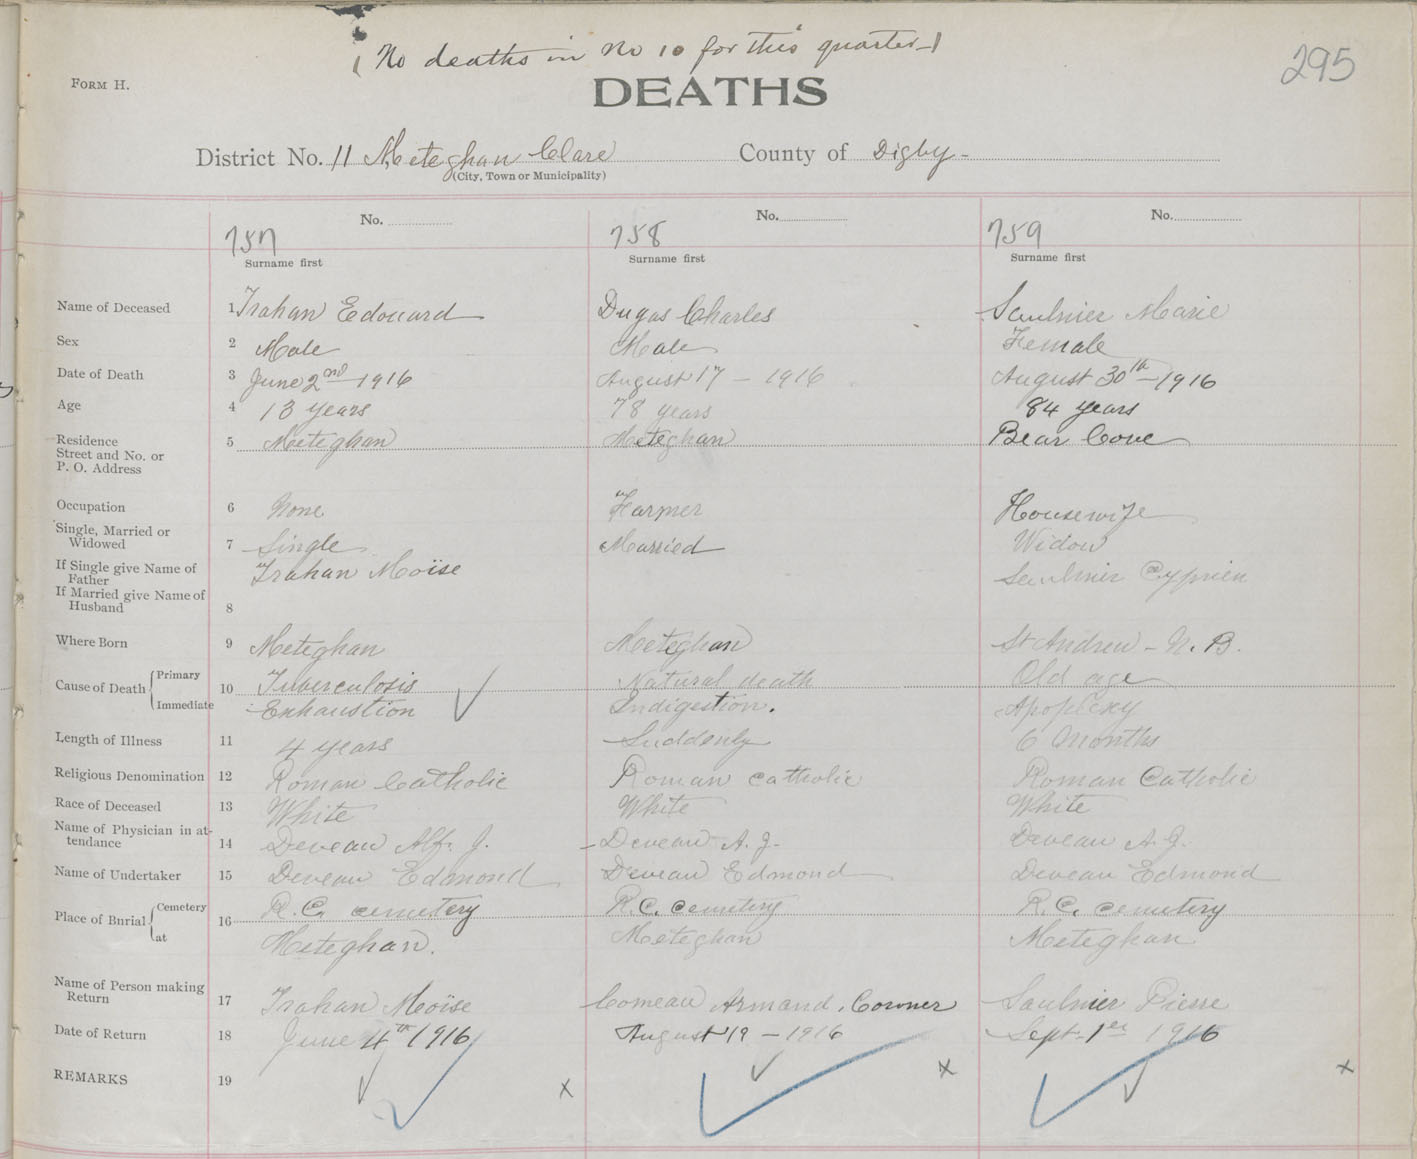 (No deaths in No 10 for this quarter-)
295
FORM H.
DEATHS
District No. 11 Meteghan Clare County of Digby-
(City, Town or Municipality)
No. No. No.
757 758 759
Surname first Surname first Surname first
Name of Deceased 1 Trahan Edouard Dugas Charles Saulnier Marie
Sex 2 Male Male Female
Date of Death 3 June 2nd-1916 August 17 - 1916 August 30th-1916
Age 4 13 years 78 years 84 years
Residence
Street and No. or
P. O. Address 5 Meteghan Meteghan Bear Cove
Occupation 6 None Farmer Housewife
Single, Married or
Widowed 7 Single Married Widow
If Single give Name of
Father Trahan Moïse Saulnier Cyprien
If Married give Name of
Husband 8
Where Born 9 Meteghan Meteghan St Andrew - N. B.
Cause of Death Primary 10 Tuberculosis Natural death Old age
Immediate Exhaustion Indigestion. Apoplexy
Length of Illness 11 4 years Suddenly 6 Months
Religious Denomination 12 Roman Catholic Roman catholic Roman Catholic
Race of Deceased 13 White White White
Name of Physician in at-
tendance 14 Deveau Alf. J. Deveau A. J. Deveau A. J.
Name of Undertaker 15 Deveau Edmond Deveau Edmond Deveau Edmond
Place of Burial Cemetery 16 R.C. cemetery R.C. cemetery R.C. cemetery
at Meteghan. Meteghan Meteghan
Name of Person making
Return 17 Trahan Moïse Comeau Armand, Coroner Saulnier Pierre
Date of Return 18 June 4th 1916 August 19 - 1916 Sept. 1er 1916
REMARKS 19 x x x